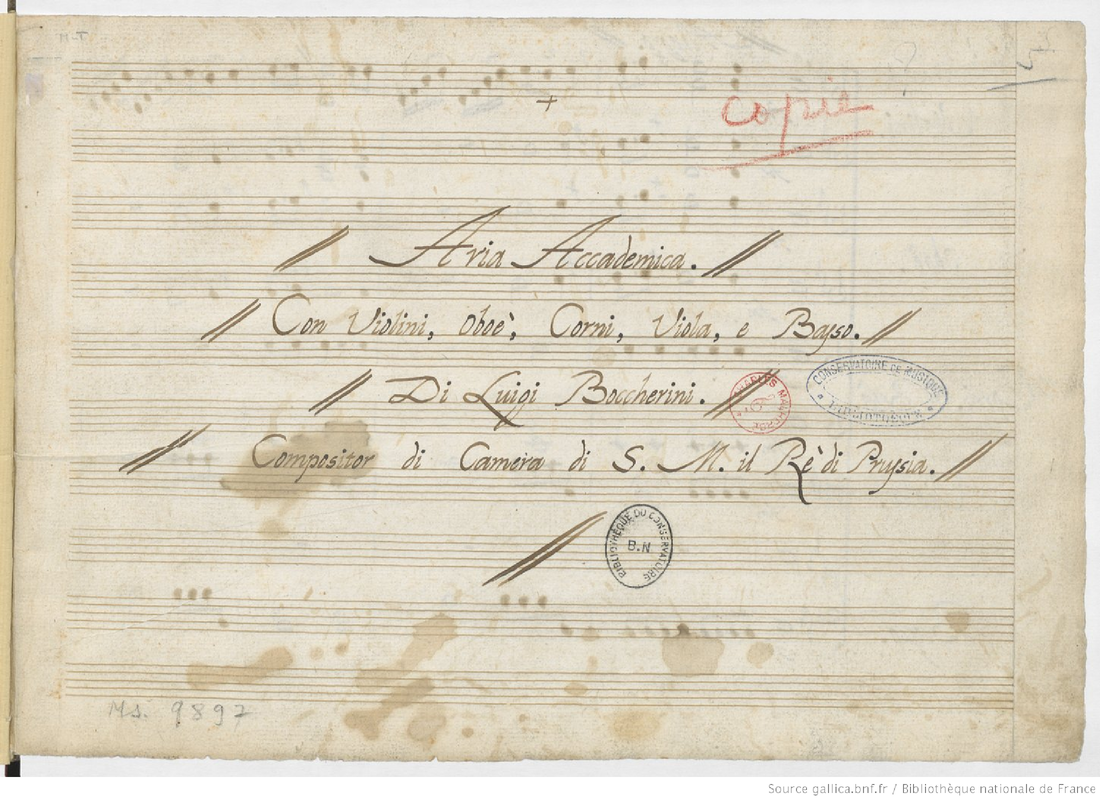 copie
Aria Accademica.
Con Violini, Oboè, Corni, Viola, e Basso.
Di Luigi Boccherini.
CHARLES MALHERBE
CONSERVATOIRE DE MUSIQUE
BIBLIOTHÈQUE
Compositor di Camera di S. M. il Rè di Prussia.
BIBLIOTHÈQUE DU CONSERVATOIRE
B.N
Ms. 9897
Source gallica.bnf.fr / Bibliothèque nationale de France